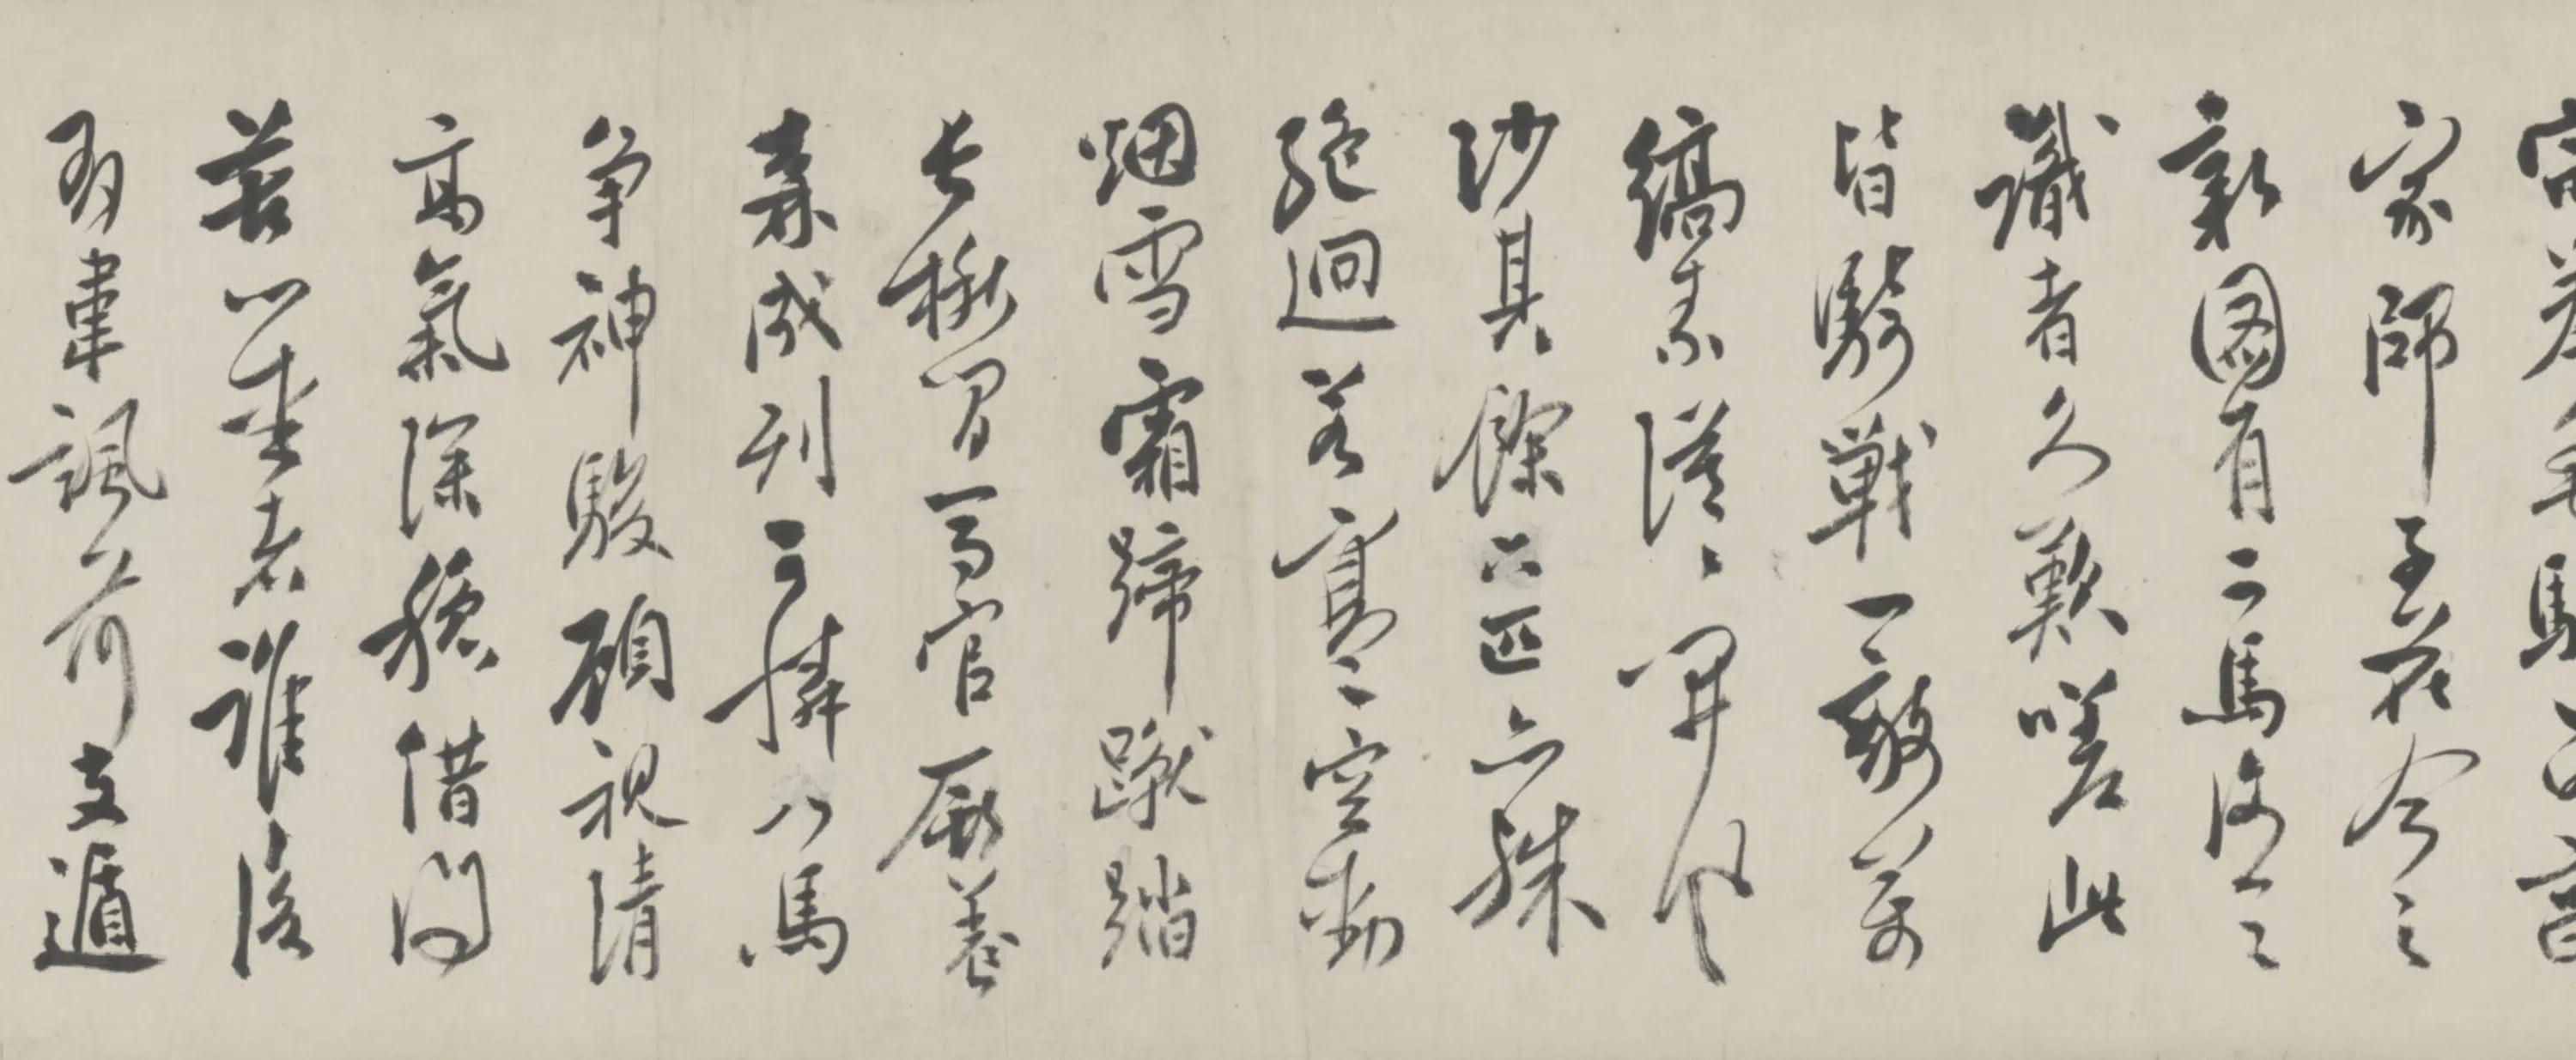 家師子花今之
新圖有二馬復令
識者久歎嗟此
皆騎戰一敵萬
縞素漠〻開風
沙其餘六匹亦殊
絕迥若寒空動
烟雪霜蹄蹴踏
長楸間馬官廝養
森成列可憐八馬
爭神駿顧視清
高氣深穩借問
苦心愛者誰後
有韋諷前支遁